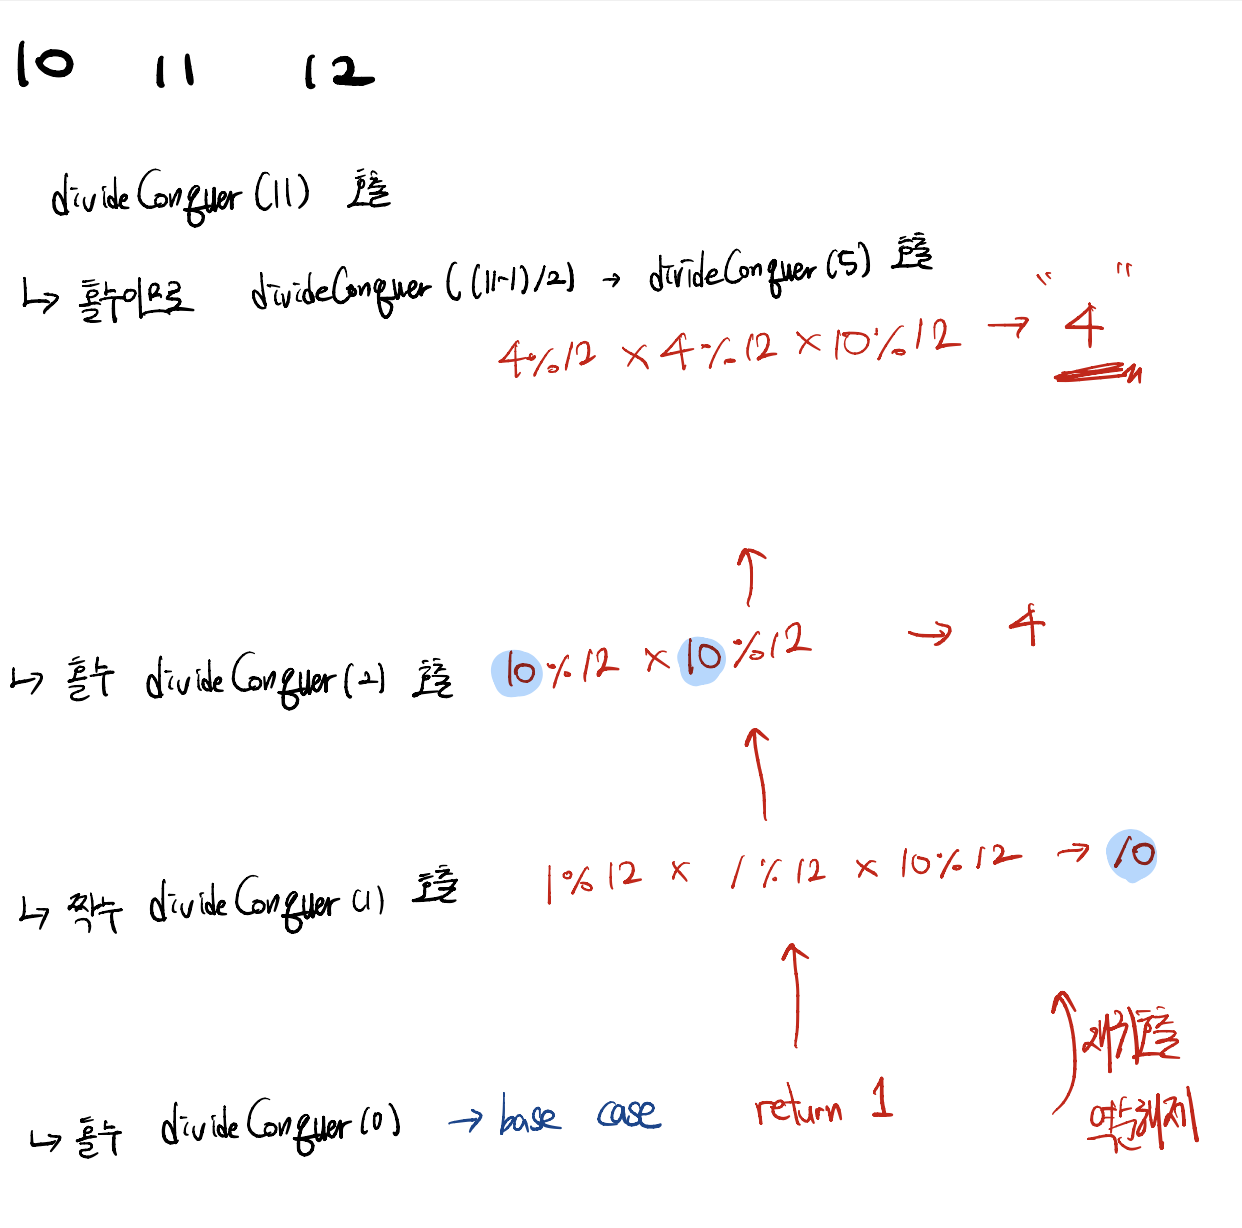 10 11 12
divideConquer (11) 호출
↳ 홀수이므로 divideConquer ((11-1)/2) → divideConquer (5) 호출
4%12 × 4%12 × 10%12 → "4"
↳ 홀수 divideConquer (2) 호출 10%12 × 10%12 → 4
↳ 짝수 divideConquer (1) 호출 1%12 × 1%12 × 10%12 → 10
재귀호출
↳ 홀수 divideConquer (0) → base case return 1
역순해제